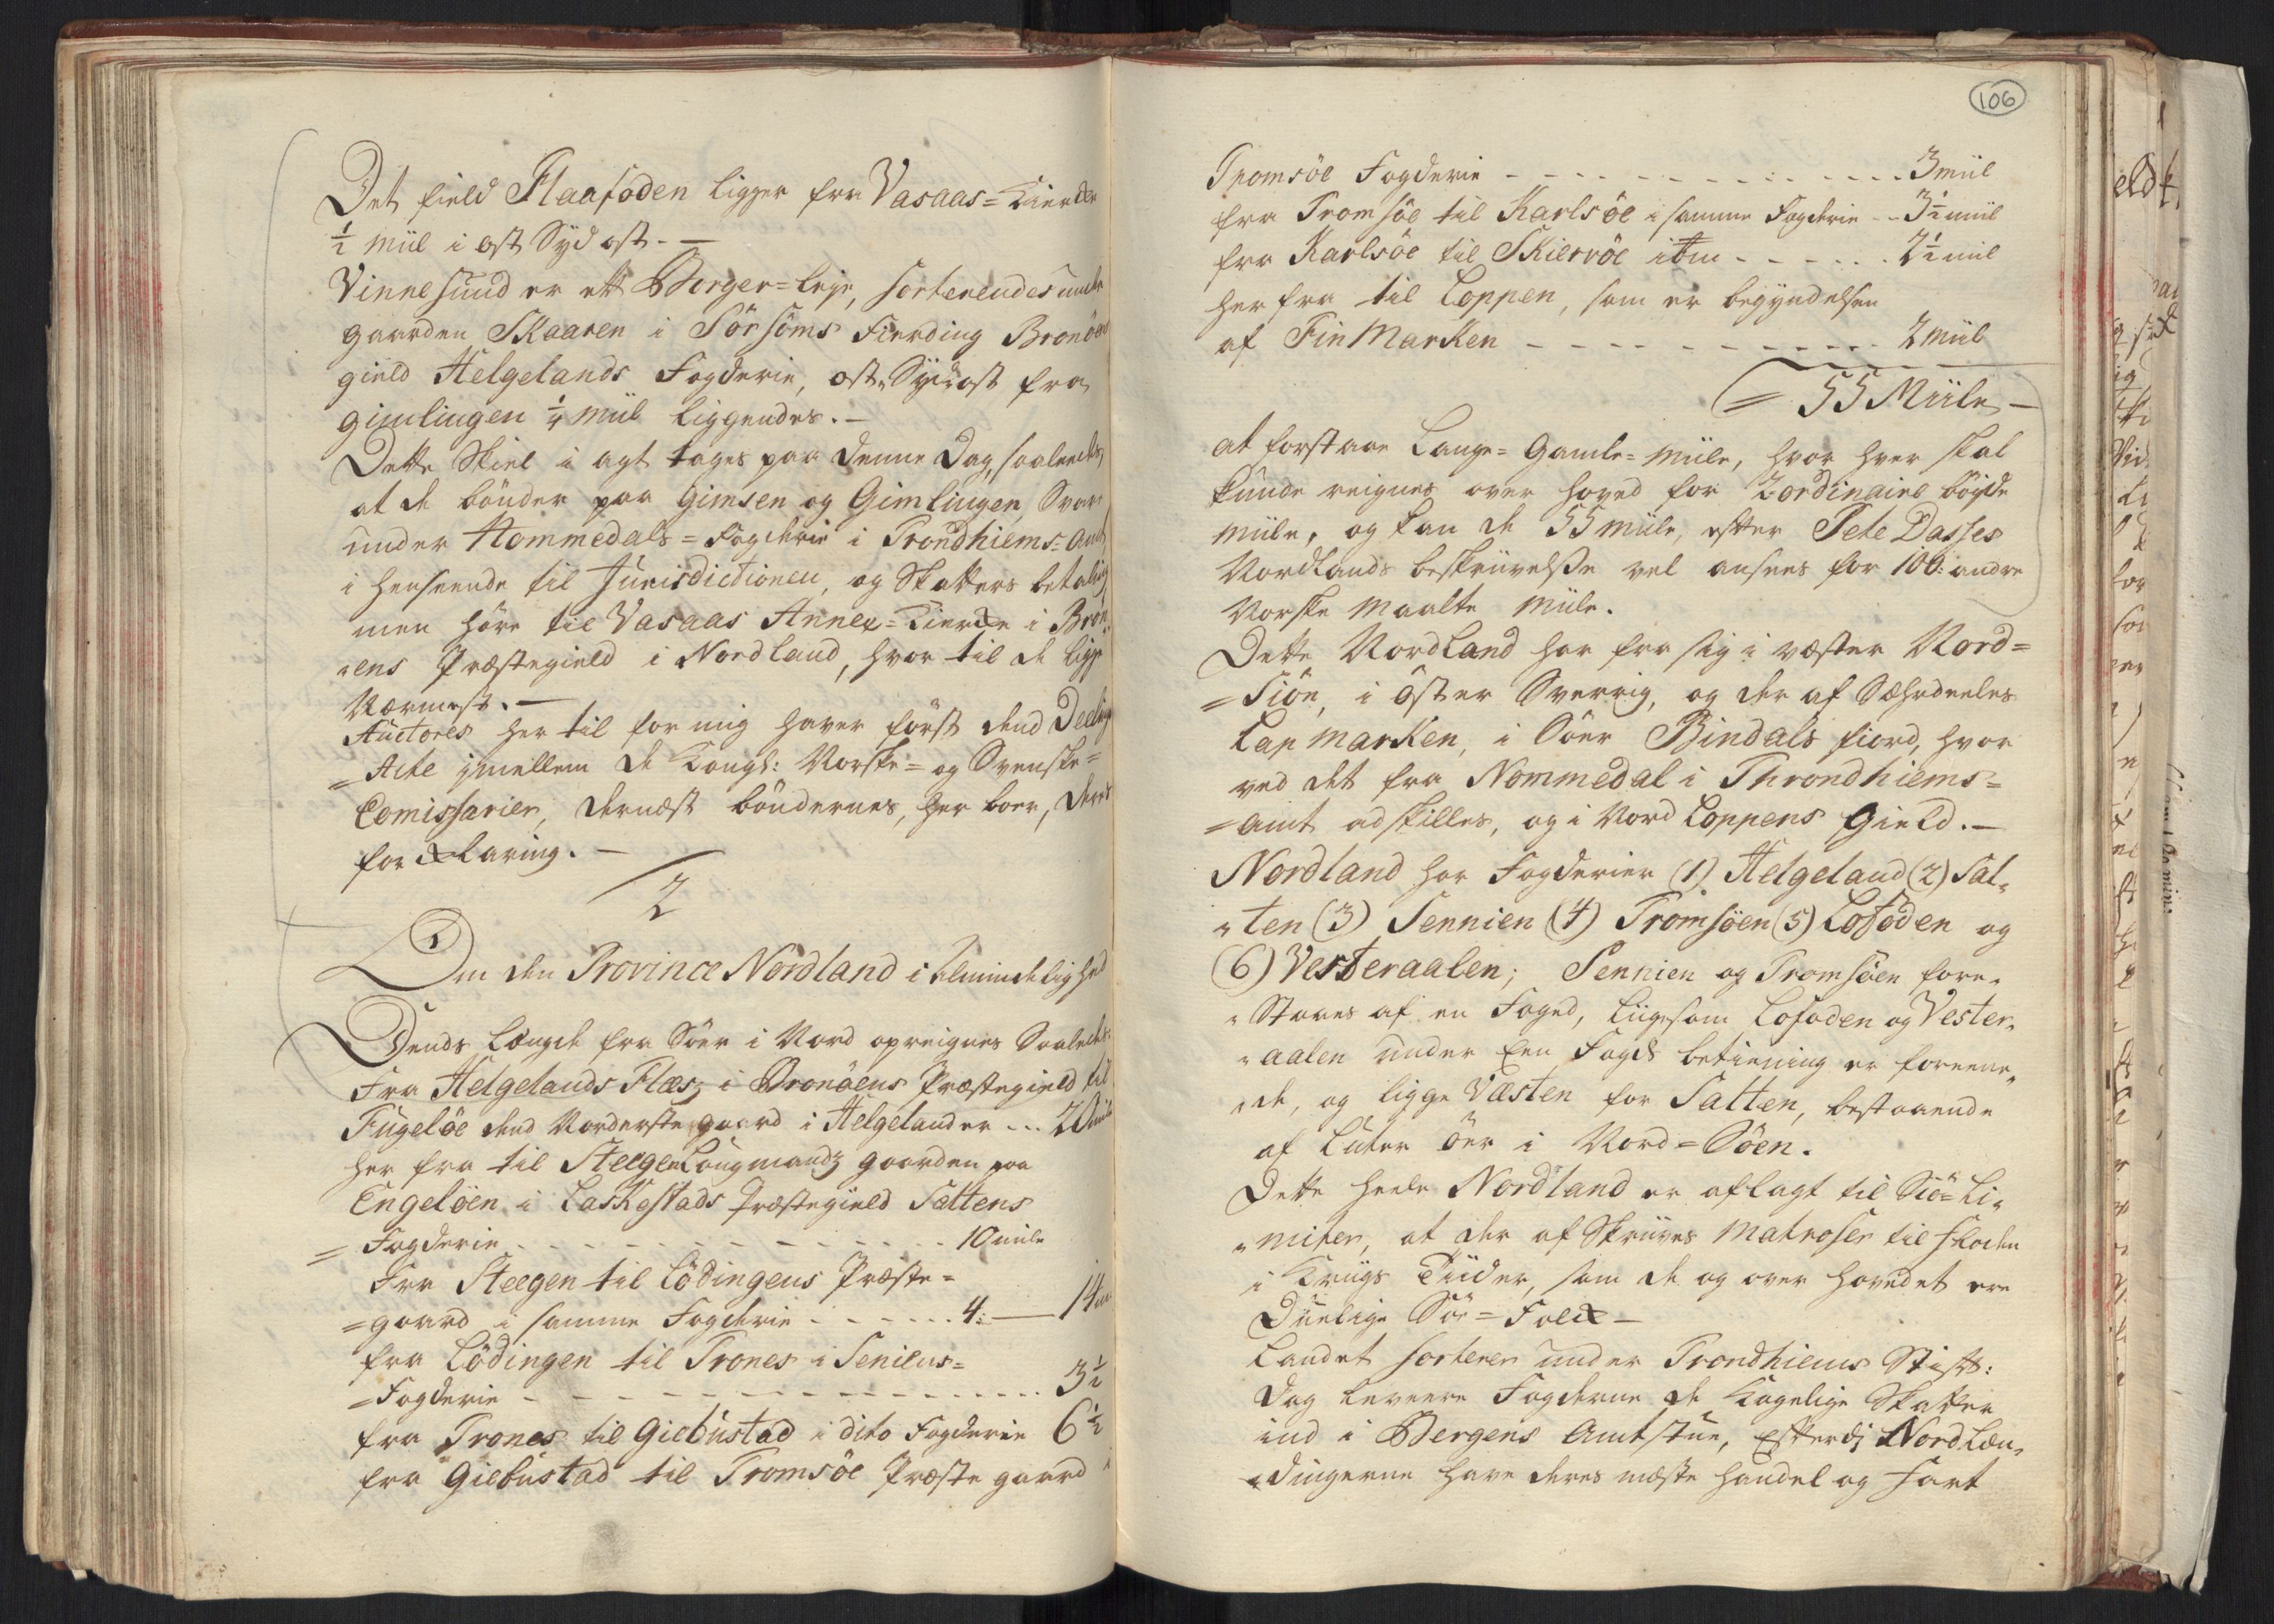 Det field Flaafoden ligger fra Vasaas=Kierche
½ miil i ost Syd ost. —
Vinnesund er ett Borger=leje, sorterendes under
gaarden Skaaren i Sörsöms Fierding Brönöens
gield Helgelands Fogderie, ost Sydost fra
gimlingen ¼ miil liggendes. —
Dette Skiel i agt tages paa denne Dag, saaledes,
at de bönder paa Gimsen og Gimlingen, Svare
under Nommedals=Fogderie i Trondhiems=Amt,
i henseende til Jurisdictionen, og Skatters betaling
men höre til Vasaas Annex=Kierke i Brön=
=öens Præstegield i Nordland, hvor til de ligge
Nærmest. —
Auctores her til for mig haver först dend Deelings
=Acte jmellem de Kongl: Norske= og Svenske=
Comissarier, dernæst böndernes, her boer, deres
forklaring. —
2
Om den Province Nordland i Almindelighed
Dends Længde fra Söer i Nord opreignes Saaledes:
Fra Helgelands Flæs, i Brönöens Præstegield til
Fugelöe dend Norderste gaard i Helgeland er - - - 20 miile
her fra til Steegen Laugmands gaarden paa
Engelöen i Laskestads Præstegield Saltens
=Fogderie - - - - - - - - 10 miile
Fra Steegen til Lödingens Præste=
=gaard i samme Fogderie - - - - - - 4: — 14 m
fra Lödingen til Trones i Seniens=
=Fogderie - - - - - - - - - - 3½
fra Trones til Giebustad i dito Fogderie 6½
fra Giebustad til Tromsöe Præste gaard i
106
Tromsöe Fogderie - - - - - - - - - - 3 miil
fra Tromsöe til Karlsöe i samme Fogderie - - 3½ miil
fra Karlsöe til Skiervöe itm - - - - - - 2½ miil
her fra til Loppen, som er begyndelsen
af FinMarken - - - - - - - - - - 2 miil
= 55 Miile —
at forstaae Lange=Gamle=miile, hvor hver skal
kunde reignes over hoved for 2 ordinaire böyde
miile, og kan de 55 miile, efter Pete Dasses
Nordlands beskrivelße vel ansees for 100: andre
Norske maalte miile.
Dette Nordland har fra sig i væster Nord=
=Siön, i öster Sverrig, og der af Særdeeles
Lapmarken, i Söer Bindals fiord, hvor
ved det fra Nommedal i Throndhiems=
=amt adskilles, og i Nord Loppens Gield. —
Nordland har Fogderier (1) Helgeland (2) Sal=
=ten (3) Sennien (4) Tromsöen (5) Lofoden og
(6) Vesteraalen; Sennien og Tromsöen fore=
=Staaes af en Foged, liigesom Lofoden og Vester=
=aalen under Een Fogeds betiening er foreene=
=de, og ligge Væsten for Salten, bestaaende
af Luter öer i Nord=Söen.
Dette heele Nordland er aflagt til Siö=Li=
=miter, at der af Skriives Matroser til floden
i Kriigs Tiider, som de og over hovedet ere
Duelige Söe=Folck —
Landet sorterer under Trondhiems Stift:
Dog levere Fogderne de Kongelige Skatter
ind i Bergens Amtstue, Efterdj Nordlæn=
=dingerne have deres mæste handel og fart